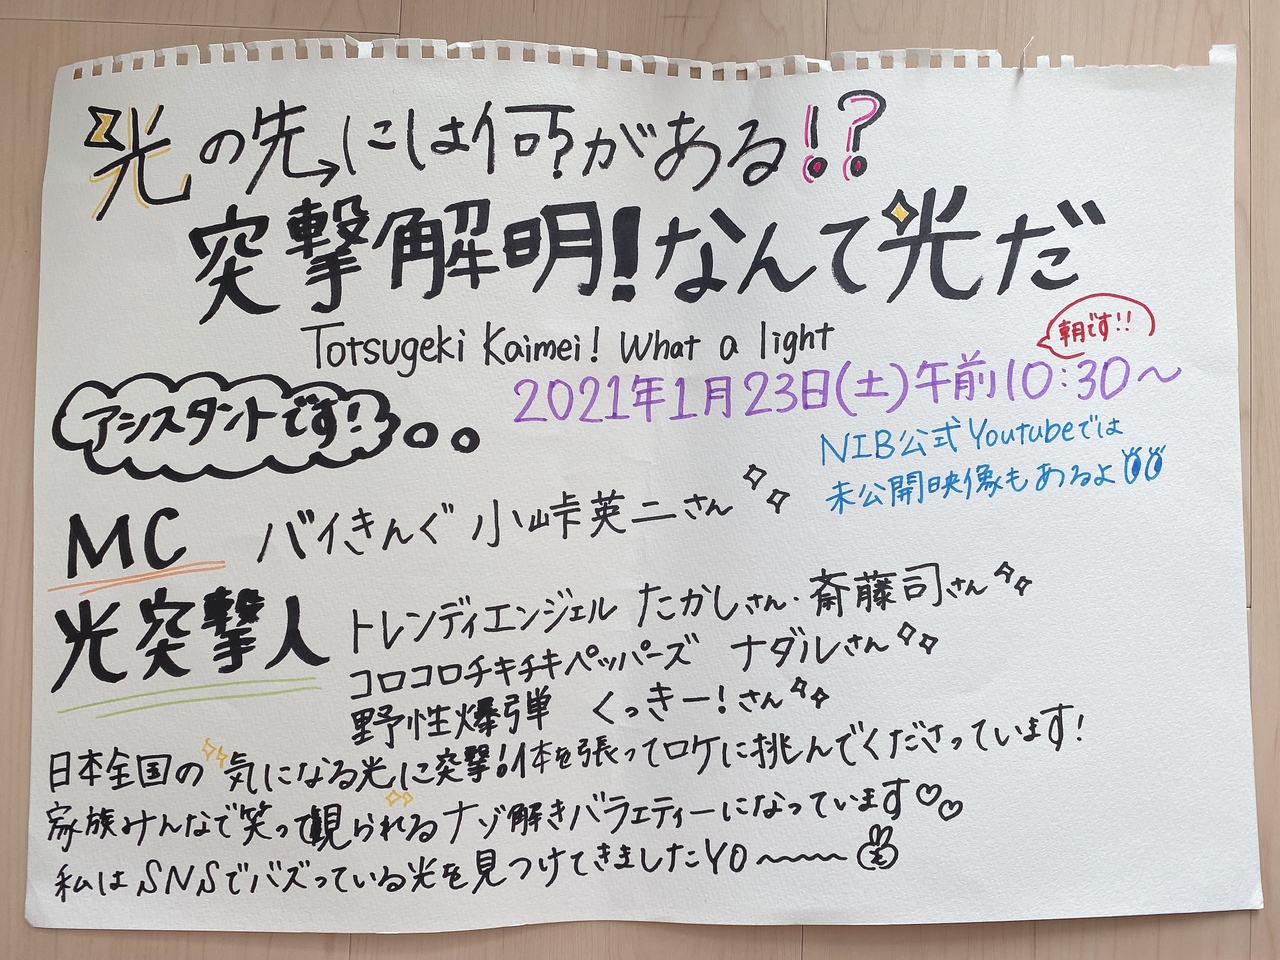 光の先には何がある!?
突撃解明!なんて光だ
Totsugeki Kaimei! What a light
朝です!!
2021年1月23日(土)午前10:30〜
アシスタントです!
NIB公式Youtubeでは
未公開映像もあるよ
MC バイきんぐ 小峠英二さん
光突撃人 トレンディエンジェル たかしさん・斎藤司さん
コロコロチキチキペッパーズ ナダルさん
野性爆弾 くっきー!さん
日本全国の気になる光に突撃!体を張ってロケに挑んでくださっています!
家族みんなで笑って観られるナゾ解きバラエティーになっています♡♡
私はSNSでバズっている光を見つけてきましたYO〜〜〜